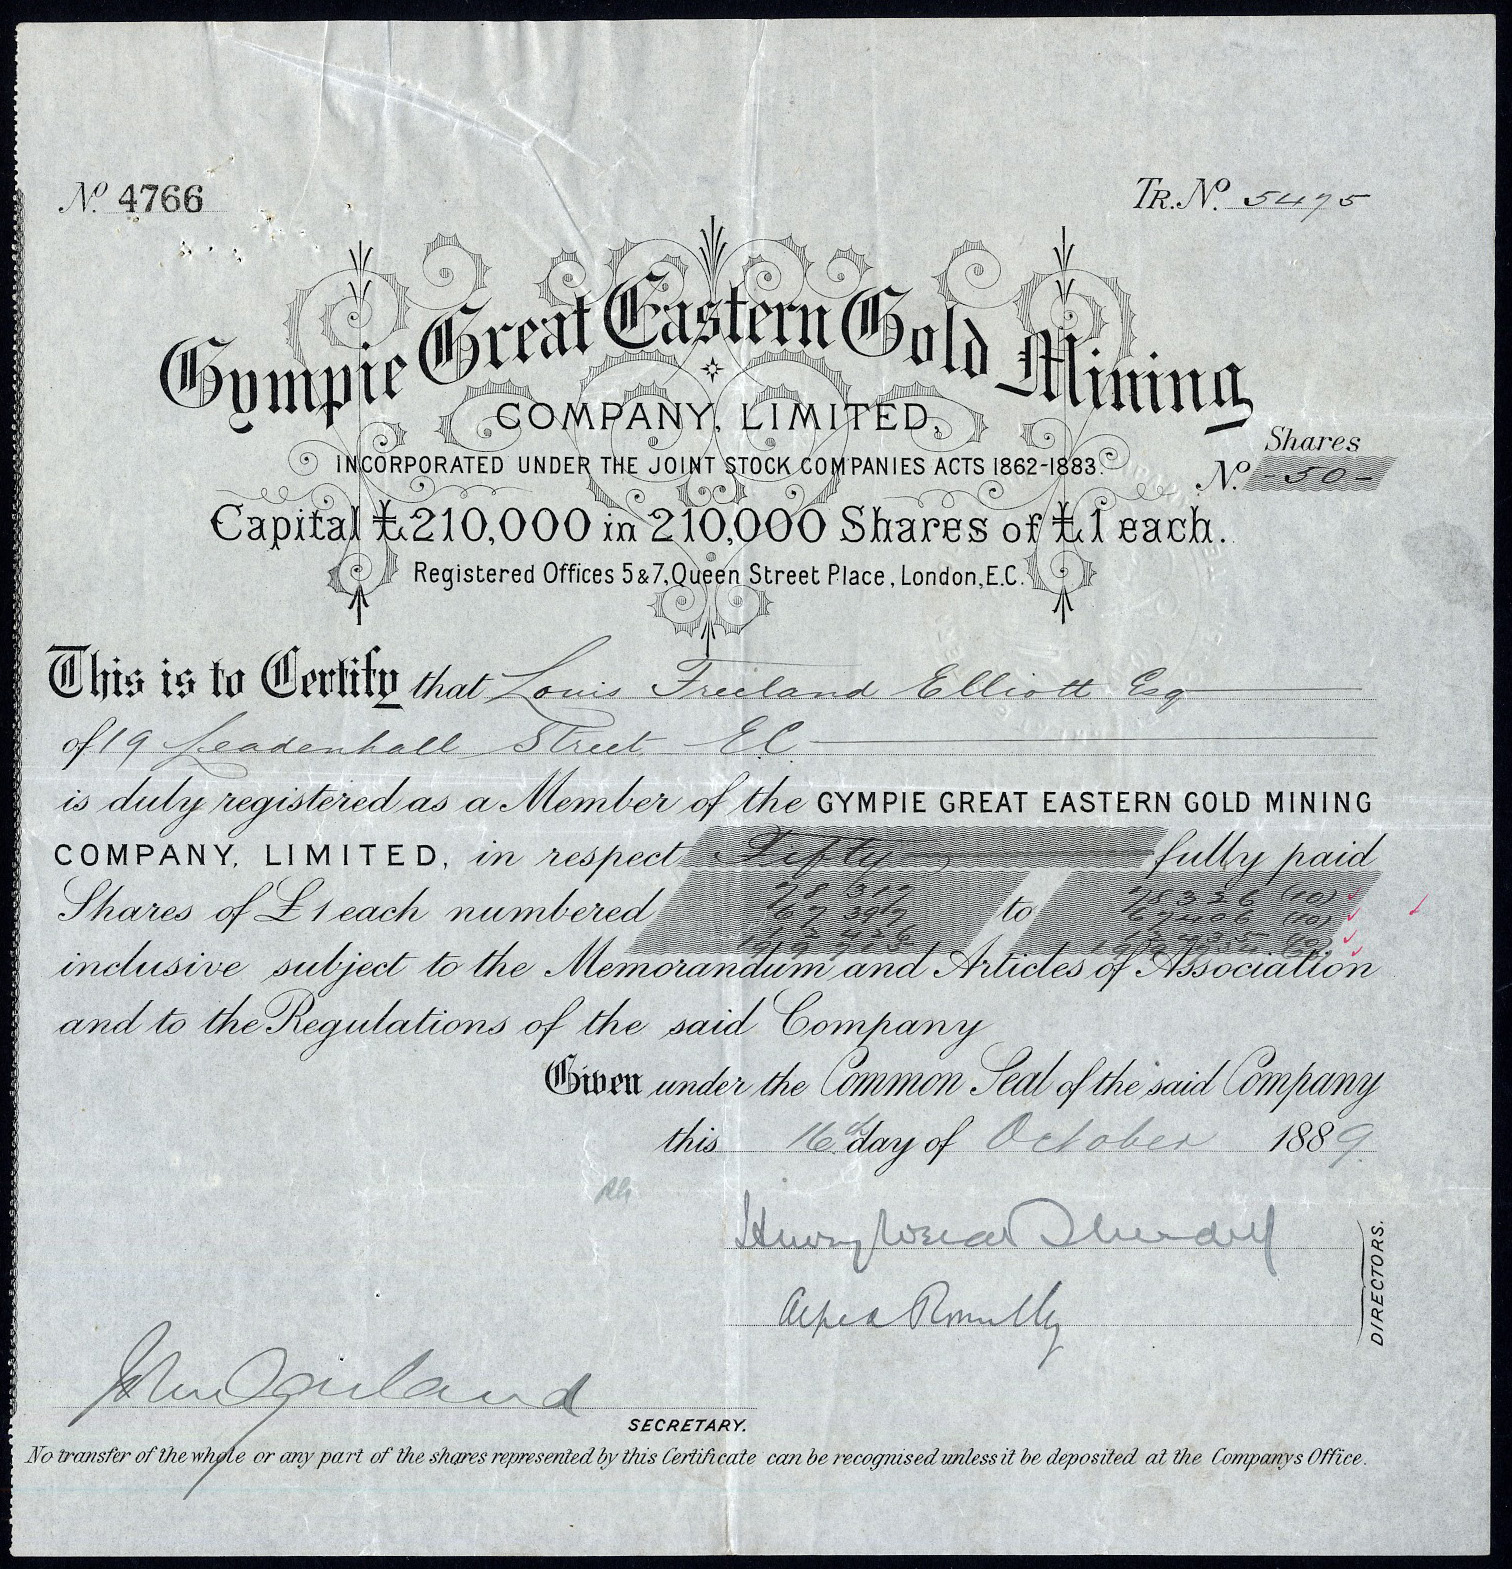 No. 4766
TR. No. 5475
Gympie Great Eastern Gold Mining
COMPANY, LIMITED,
INCORPORATED UNDER THE JOINT STOCK COMPANIES ACTS 1862-1883.
Shares
No. -50-
Capital £210,000 in 210,000 Shares of £1 each.
Registered Offices 5 & 7, Queen Street Place, London, E.C.
This is to Certify that Louis Freeland Elliott Esq
of 19 Leadenhall Street E.C.
is duly registered as a Member of the GYMPIE GREAT EASTERN GOLD MINING
COMPANY, LIMITED, in respect Fifty fully paid
78317 78326 (10)
Shares of £1 each numbered 67397 to 67406 (10)
inclusive subject to the Memorandum and Articles of Association
and to the Regulations of the said Company
Given under the Common Seal of the said Company
this 16th day of October 1889.
DIRECTORS.
SECRETARY.
No transfer of the whole or any part of the shares represented by this Certificate can be recognised unless it be deposited at the Companys Office.